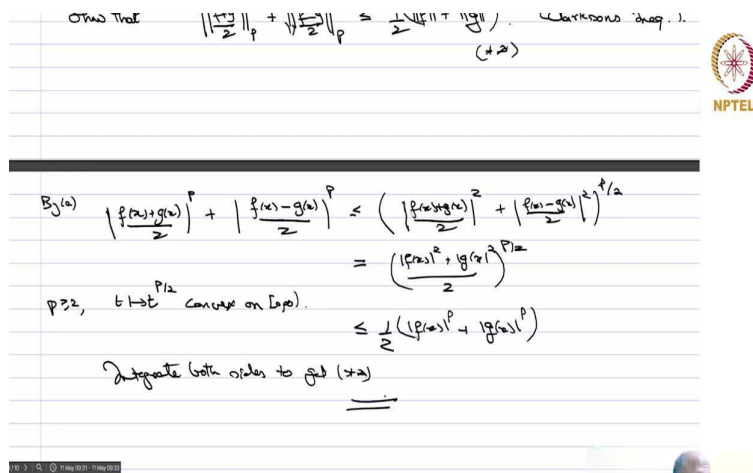 Show that ||f+g/2||_p + ||f-g/2||_p ≤ 1/2(||f|| + ||g||). (Clarkson's Ineq.).
(*2)
NPTEL
By (a) |f(x)+g(x)/2|^p + |f(x)-g(x)/2|^p ≤ (|f(x)+g(x)/2|^2 + |f(x)-g(x)/2|^2)^p/2
= (|f(x)|^2 + |g(x)|^2/2)^p/2
p≥2, t↦t^p/2 convex on [0,∞).
≤ 1/2(|f(x)|^p + |g(x)|^p)
Integrate both sides to get (*2)
11 May 09:31 - 11 May 09:33